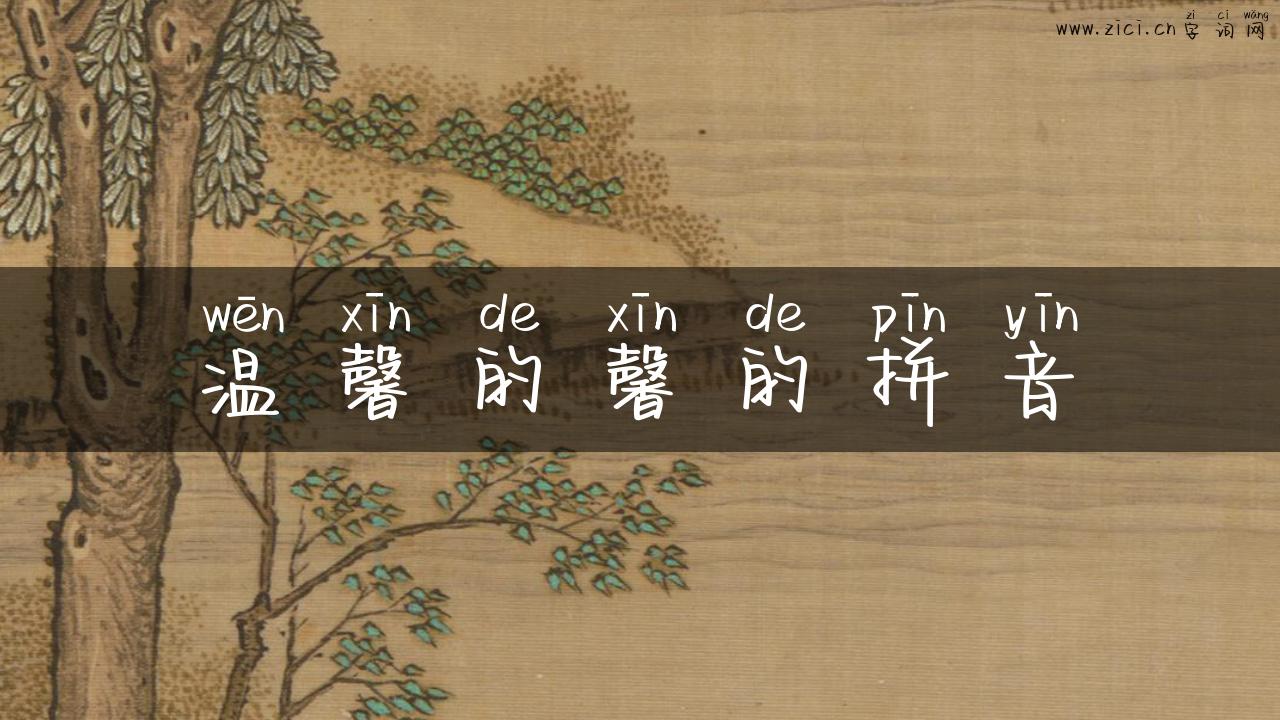 zì cí wǎng
www.zici.cn 字 词 网
wēn xīn de xīn de pīn yīn
温 馨 的 馨 的 拼 音